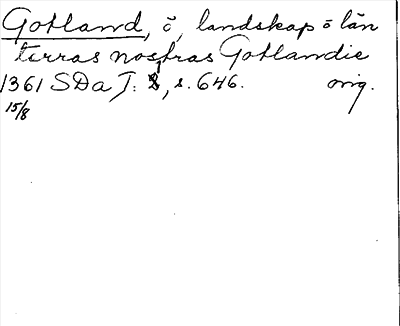 Gotland, ö, landskap o län
terras nostras Gotlandie
1361 SDa I: 8, s. 646. orig.
15/8